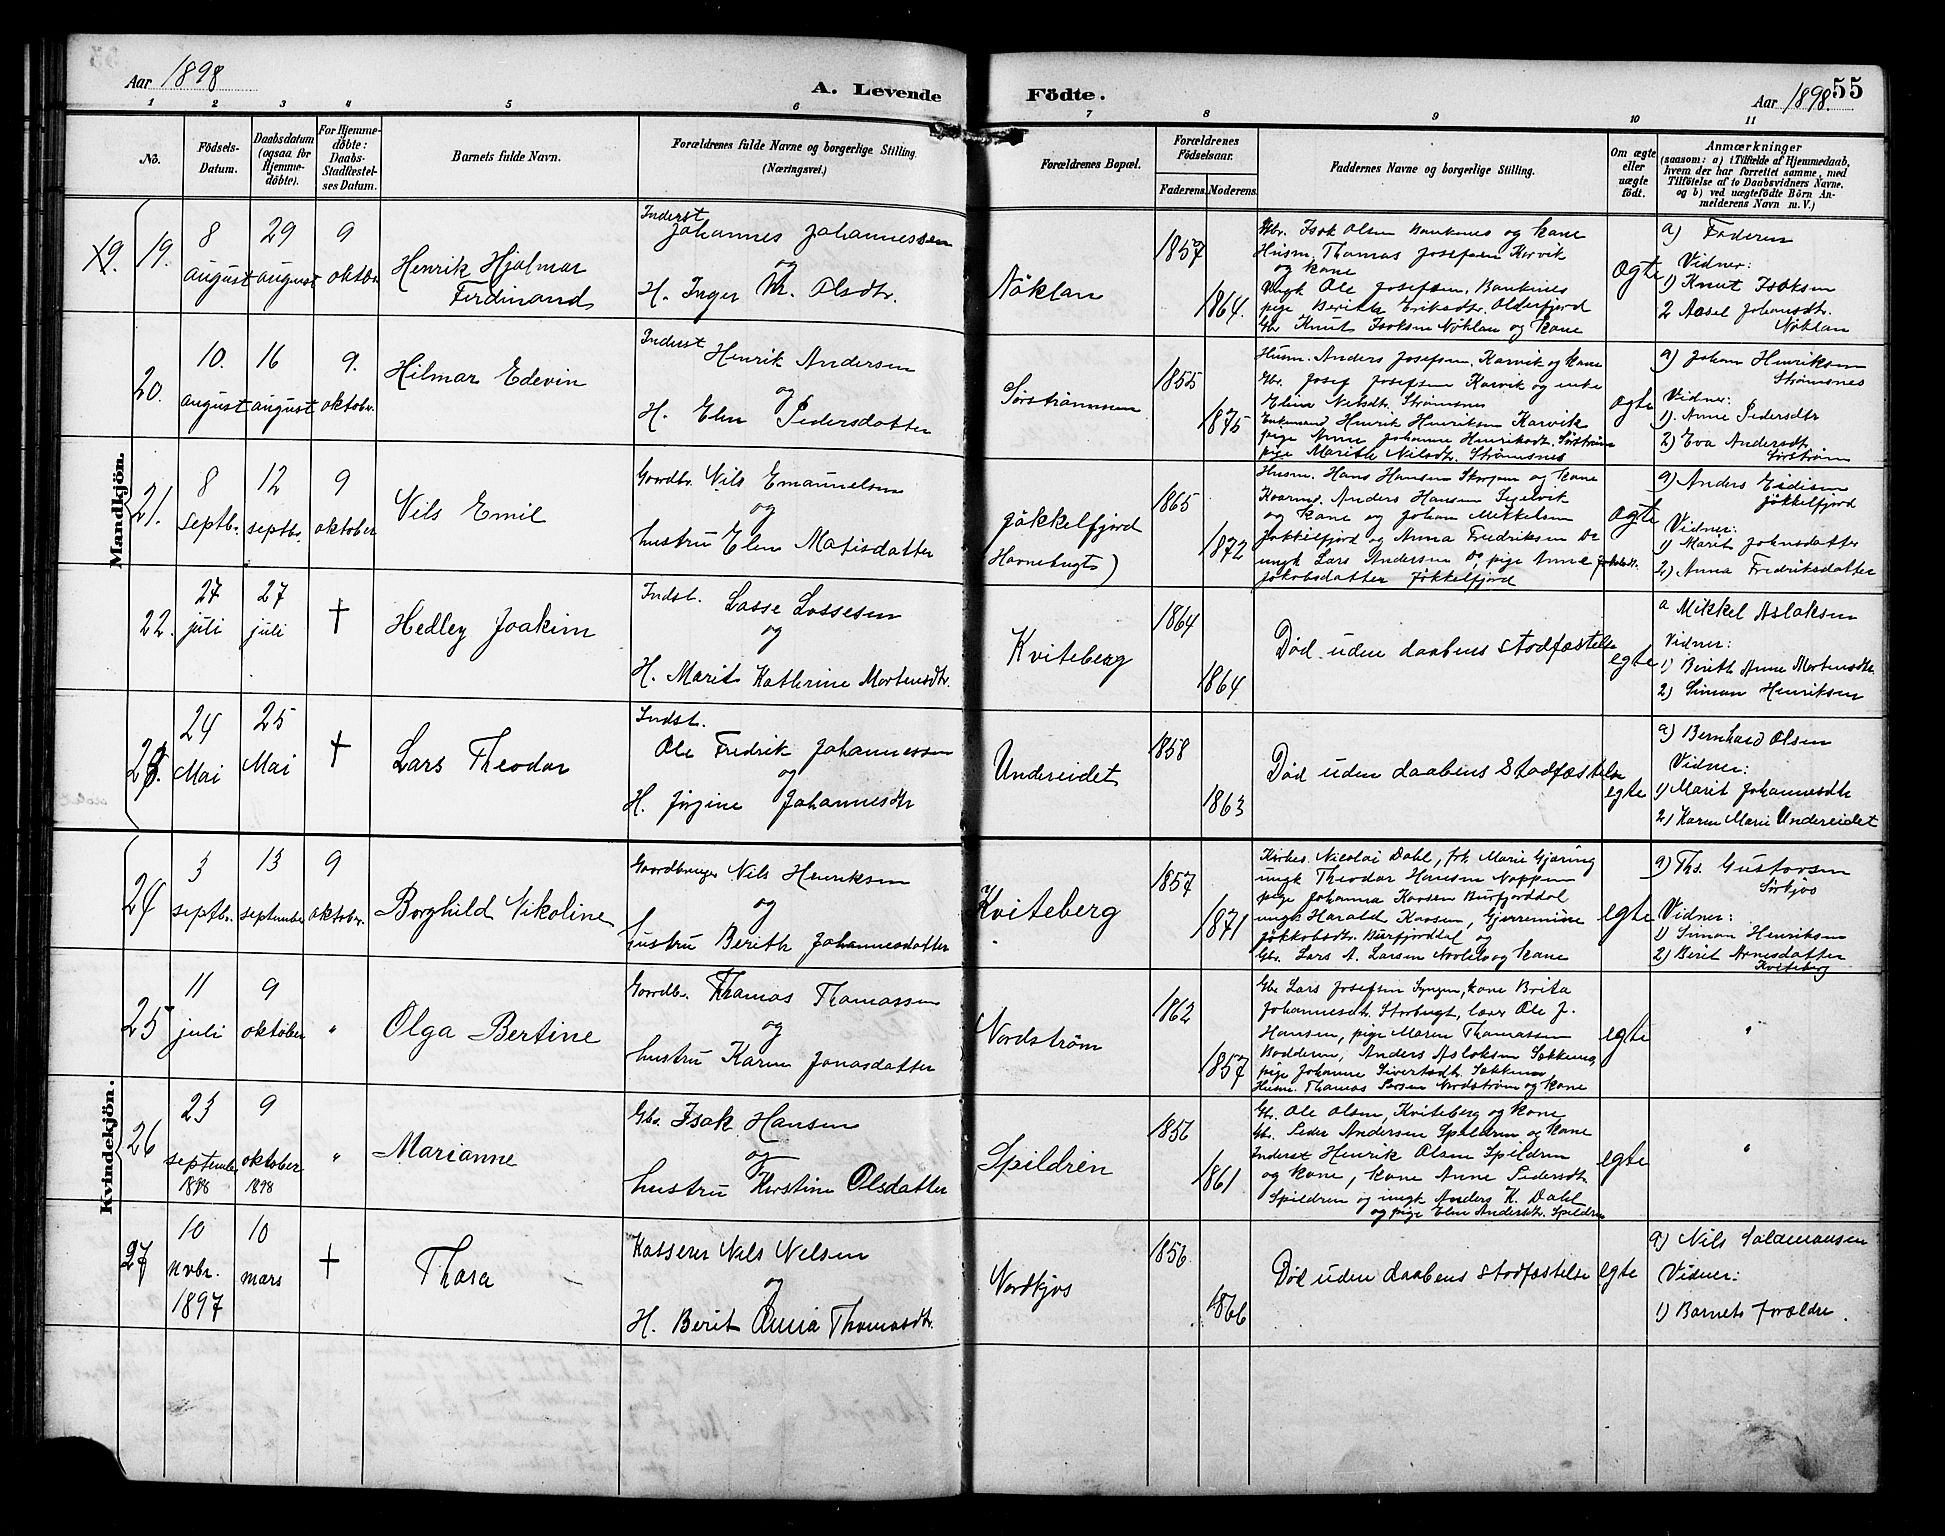 Aar 1898
A. Levende
Födte.
Aar 1898.
55
1 2 3 4 5 6 7 8 9 10 11
No.
Födsels-
Datum.
Daabsdatum
(ogsaa for
Hjemme-
döbte).
For Hjemme-
döbte:
Daabs-
Stadfestel-
ses Datum.
Barnets fulde Navn.
Forældrenes fulde Navne og borgerlige Stilling.
(Næringsvei.)
Forældrenes Bopæl.
Forældrenes
Födselsaar.
Faderens. Moderens.
Faddernes Navne og borgerlige Stilling.
Om ægte
eller
uægte
født.
Anmærkninger
(saasom: a) i Tilfælde af Hjemmedaab,
hvem der har forrettet samme, med
Tilföielse af to Daabsvidners Navne.
og b) ved uægtefödte Börn An-
melderens Navn m. V.)
Mandkjön.
19.
8
august
29
august
9
oktbr
Henrik Hjalmar
Ferdinand
Inderst
Johannes Johannessen
og
H. Inger M. Olsdtr.
Nöklan
1857
1864.
Gbr. Isak Olsen Bankenes og kone
Husm. Thomas Josefsen Korvik
og kone
Ungk Ole Josefsen, Bankenes
pige Berith Eriksdtr. Olderfjord
Gbr Knut Isaksen Nöklan og kone
ægte
a) Faderen
Vidner:
1) Knut Isaksen
2 Aasel Johansdtr.
Nöklan
20.
10.
august
16
august
9.
oktobr.
Hilmar Edevin
Inderst
Henrik Andersen
og
H. Elen Pedersdatter
Sørstrømmen
1855
1875
Husm. Anders Josefsen. Karvik og kone
Gbr. Josef Josefsen Karvik og enke
Elina Nilsdtr. Strømsnes
Enkemand Henrik Henriksen Karvik
pige Anne Johanne Henriksdt. Sørstrøm
pige Marith Nilsdtr. Strømsnes
ægte
a) Johan Henriksen
Strømsnes
Vidner:
1). Anne Pedersdtr
2) Eva Andersdtr
Sørstrøm
21.
8
septb.
12
septbr.
9
oktober
Nils Emil
Gaardbr. Nils Emanuelsen
og
hustru Elen Matisdatter
Jökkelfjord
Havnebugt)
1865
1872
Husm. Hans Hansen Skorpen og kone
Anders Hansen Segelvik
og kone og Johan Mikkelsen
Jökkelfjord og Anna Fredriksen Do
ungk Lars Andersen Do, pige Anne
Jakobsdatter Jökkelfjord
ægte
a) Anders
Jökkelfjord
Vidner:
1) Marit Johnsdatter
2) Anna Fredriksdatter
22.
27
juli
27
juli
†
Hedley Joakim
Indst. Lasse Lassesen
og
H. Marit Kathrine Mortensdtr.
Kviteberg
1864
1864.
Død uden daabens stadfæstelse
egte
a Mikkel Aslaksen
Vidner:
1) Berith Anne Mortensdtr
2) Simon Henriksen
23.
24
Mai
25
Mai
†
Lars Theodor
Indst.
Ole Fredrik Johannessen
og
H. Jörgine Johannesdtr
Undereidet
1858
1863
Død uden daabens Stadfæstelse
egte
a) Bernhard Olsen
Vidner:
1) Marit Johannesdtr
2) Karen Marie Undereidet
Kvindekjön.
24
3
septbr.
13
september
9
oktober.
Borghild Nikoline
Gaardbruger Nils Henriksen
og
hustru Berith Johannesdatter
Kviteberg
1857
1871
Kirkes. Nicolai Dahl, frk Marie Gjæring
ungk Theodor Hansen Noppen
pige Johanna Kaasen Burfjorddal
ungk Harald Kaasen, Gjerremine
Jøkkobsdtr. Burfjorddal og
Gbr. Lars A. Larsen og kone
egte
a) Ths. Gustavsen
Sørkjos
Vidner:
1) Simon Henriksen
2) Berit Arnesdatter
Kviteberg
25
11
juli
9
oktober
"
Olga Bertine
Gaardb. Thomas Thomassen
og
hustru Karen Jonasdatter
Nordström
1862
1857
Gbr Lars Josefsen Lyngen, kone Brita
Johannesdt. Storbugt, lærer Ole J.
Hansen, pige Maren Thomassen
Bodderen, Anders Aslaksen
pige Johanne Sivertsdtr.
Husm. Thomas Nordstrøm og kone
egte
"
26
23
september
1898
9
oktober
1898
"
Marianne
Gbr. Isak Hansen
og
hustru Kirstine Olsdatter
Spildren
1856
1861
Gbr. Ole Olsen, Kviteberg og kone
Gbr. Peder Andersen Spildren og kone
Inderst Henrik Olsen Spildren
og kone, kone Anne Pedersdtr
Spildren og ungk Anders K. Dahl
og pige Elen Andersdtr. Spildren
egte
"
27
10
nvbr.
1897
10
mars
†
Thora
Kasserer Nils Nelsen
og
H. Berit Anna Thomasdtr.
Nordkjos
1856
1866
Död uden daabens stadfæstelse
egte
a) Nils Saldemonsen
Vidner:
1) Barnets forældre.